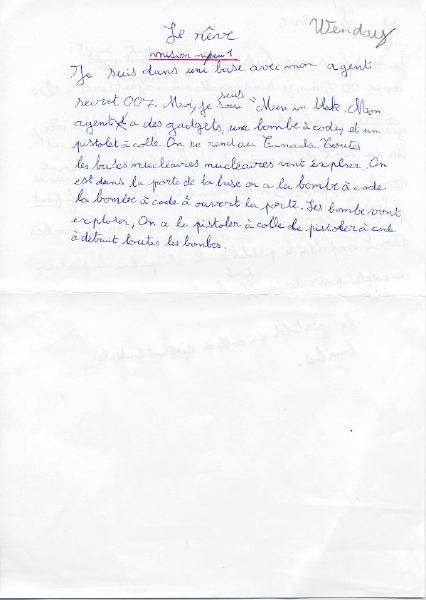 Le rêve
Wenday
mision nipeu 1
Je suis dans une base avec mon agent
suis
secret 007. Moi, je suis "Men in blak. Mon
agent a des gadgets, une bombe à code, et un
pistolet à colle. On se rend au Canada. Toutes
les bases nucléaires nucléaires vont exploser. On
est dans la porte de la base on a la bombe à code
la bombe à code à ouvert la porte. Les bombe vont
exploser, On a le pistoler à colle de pistoler à code
à détruit toutes les bombes.